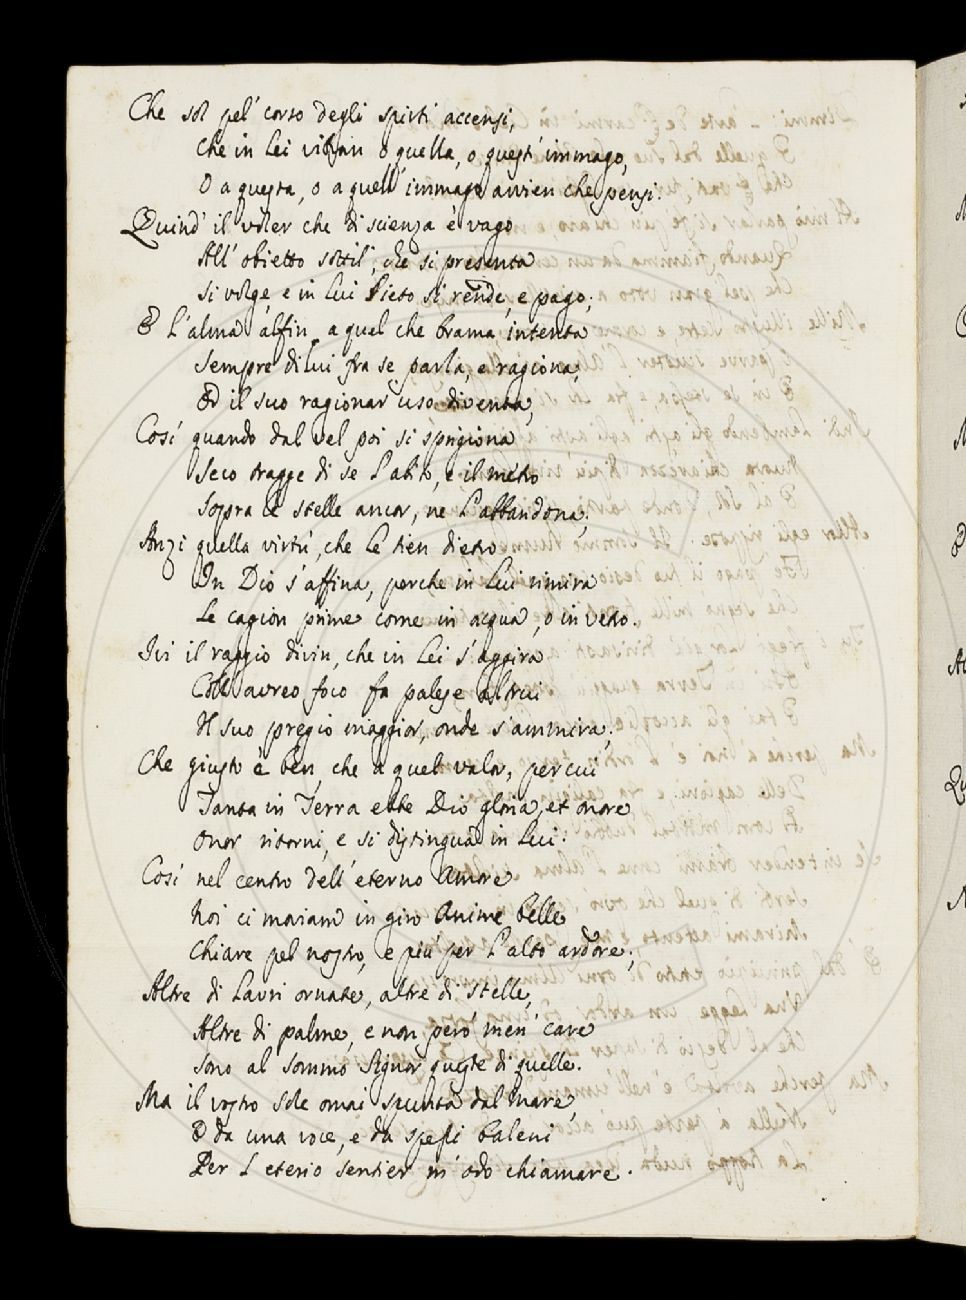 Che sol pel' corso degli spirti accensi,
Che in Lei vibran o quella, o quest' immago,
O a questa, o a quell' immago avvien che pensi.
Quind' il voler che di scienza è vago
All' obietto sottil', che si presenta
Si volge, e in Lui lieto si rende, e pago;
E L'alma alfin a quel che brama intenta
Sempre di lui fra se parla, e ragiona,
Ed il suo ragionar uso diventa,
Così quando dal vel poi si sprigiona
Seco tragge di se l'abito, e il metro
Sopra le stelle ancor, ne l'abbandona;
Anzi quella virtù, che Le tien dietro
In Dio s'affina, perche in Lui rimira
Le cagion prime come in acqua, o in vetro.
Ivi il raggio divin, che in Lei s'aggira
Coll' aureo foco fa palese altrui
Il suo pregio maggior, onde s'ammira;
Che giusto è ben, che a quel valor, per cui
Tanta in Terra ebbe Dio gloria, et onore
Onor ritorni, e si distingua in Lui.
Così nel centro dell' eterno Amore
Noi ci moviam in giro Anime belle
Chiare pel nostro, e più per l'alto ardore;
Altre di Lauri ornate, altre di stelle,
Altre di palme, e non però men' care
Sono al sommo Signor queste di quelle.
Ma il vostro sole omai spunta dal Mare,
E da una voce, e da spessi baleni
Per l eterio sentier m' odo chiamare.